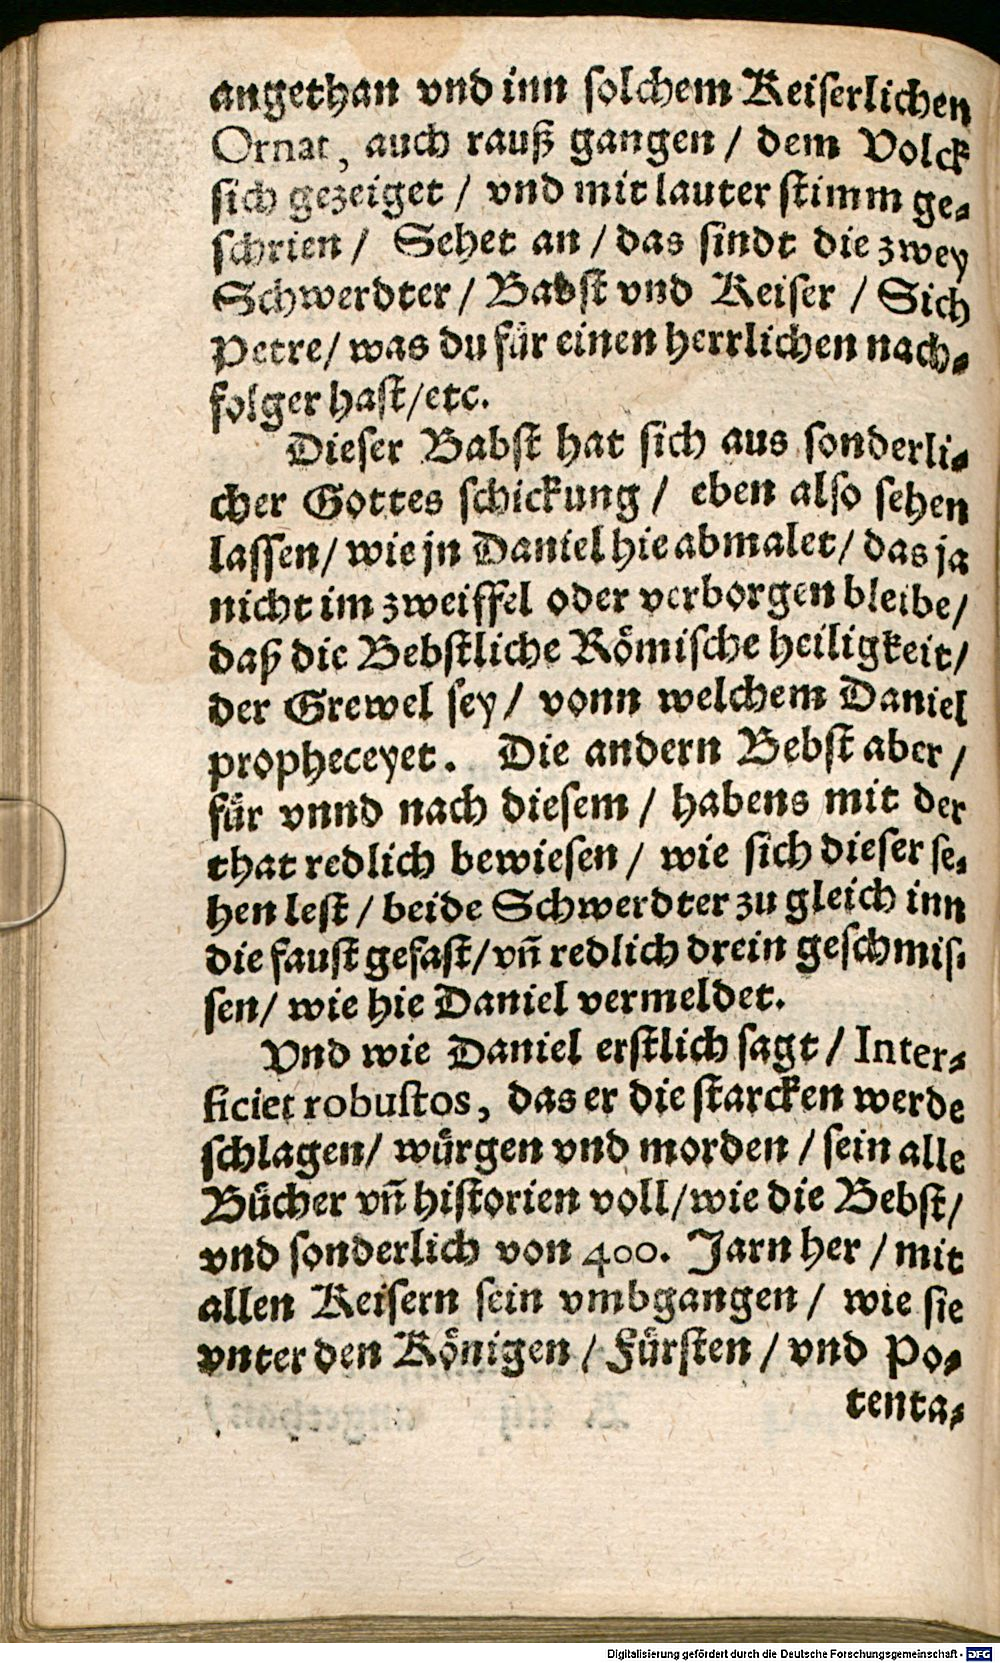 angethan vnd inn solchem Keiserlichen
Ornat, auch rauß gangen / dem Volck
sich gezeiget / vnd mit lauter stimm ge⸗
schrien / Sehet an / das sindt die zwey
Schwerdter / Babst vnd Keiser / Sich
Petre / was du für einen herrlichen nach⸗
folger hast / etc.
Dieser Babst hat sich aus sonderli⸗
cher Gottes schickung / eben also sehen
lassen / wie jn Daniel hie abmalet / das ja
nicht im zweiffel oder verborgen bleibe /
daß die Bebstliche Römische heiligkeit /
der Grewel sey / vonn welchem Daniel
propheceyet. Die andern Bebst aber /
für vnnd nach diesem / habens mit der
that redlich bewiesen / wie sich dieser se⸗
hen lest / beide Schwerdter zu gleich inn
die faust gefast / vñ redlich drein geschmis⸗
sen / wie hie Daniel vermeldet.
Vnd wie Daniel erstlich sagt / Inter⸗
ficiet robustos, das er die starcken werde
schlagen / würgen vnd morden / sein alle
Bücher vñ historien voll / wie die Bebst /
vnd sonderlich von 400. Jarn her / mit
allen Keisern sein vmbgangen / wie sie
vnter den Königen / Fürsten / vnd Po⸗
tenta⸗
Digitalisierung gefördert durch die Deutsche Forschungsgemeinschaft - DFG